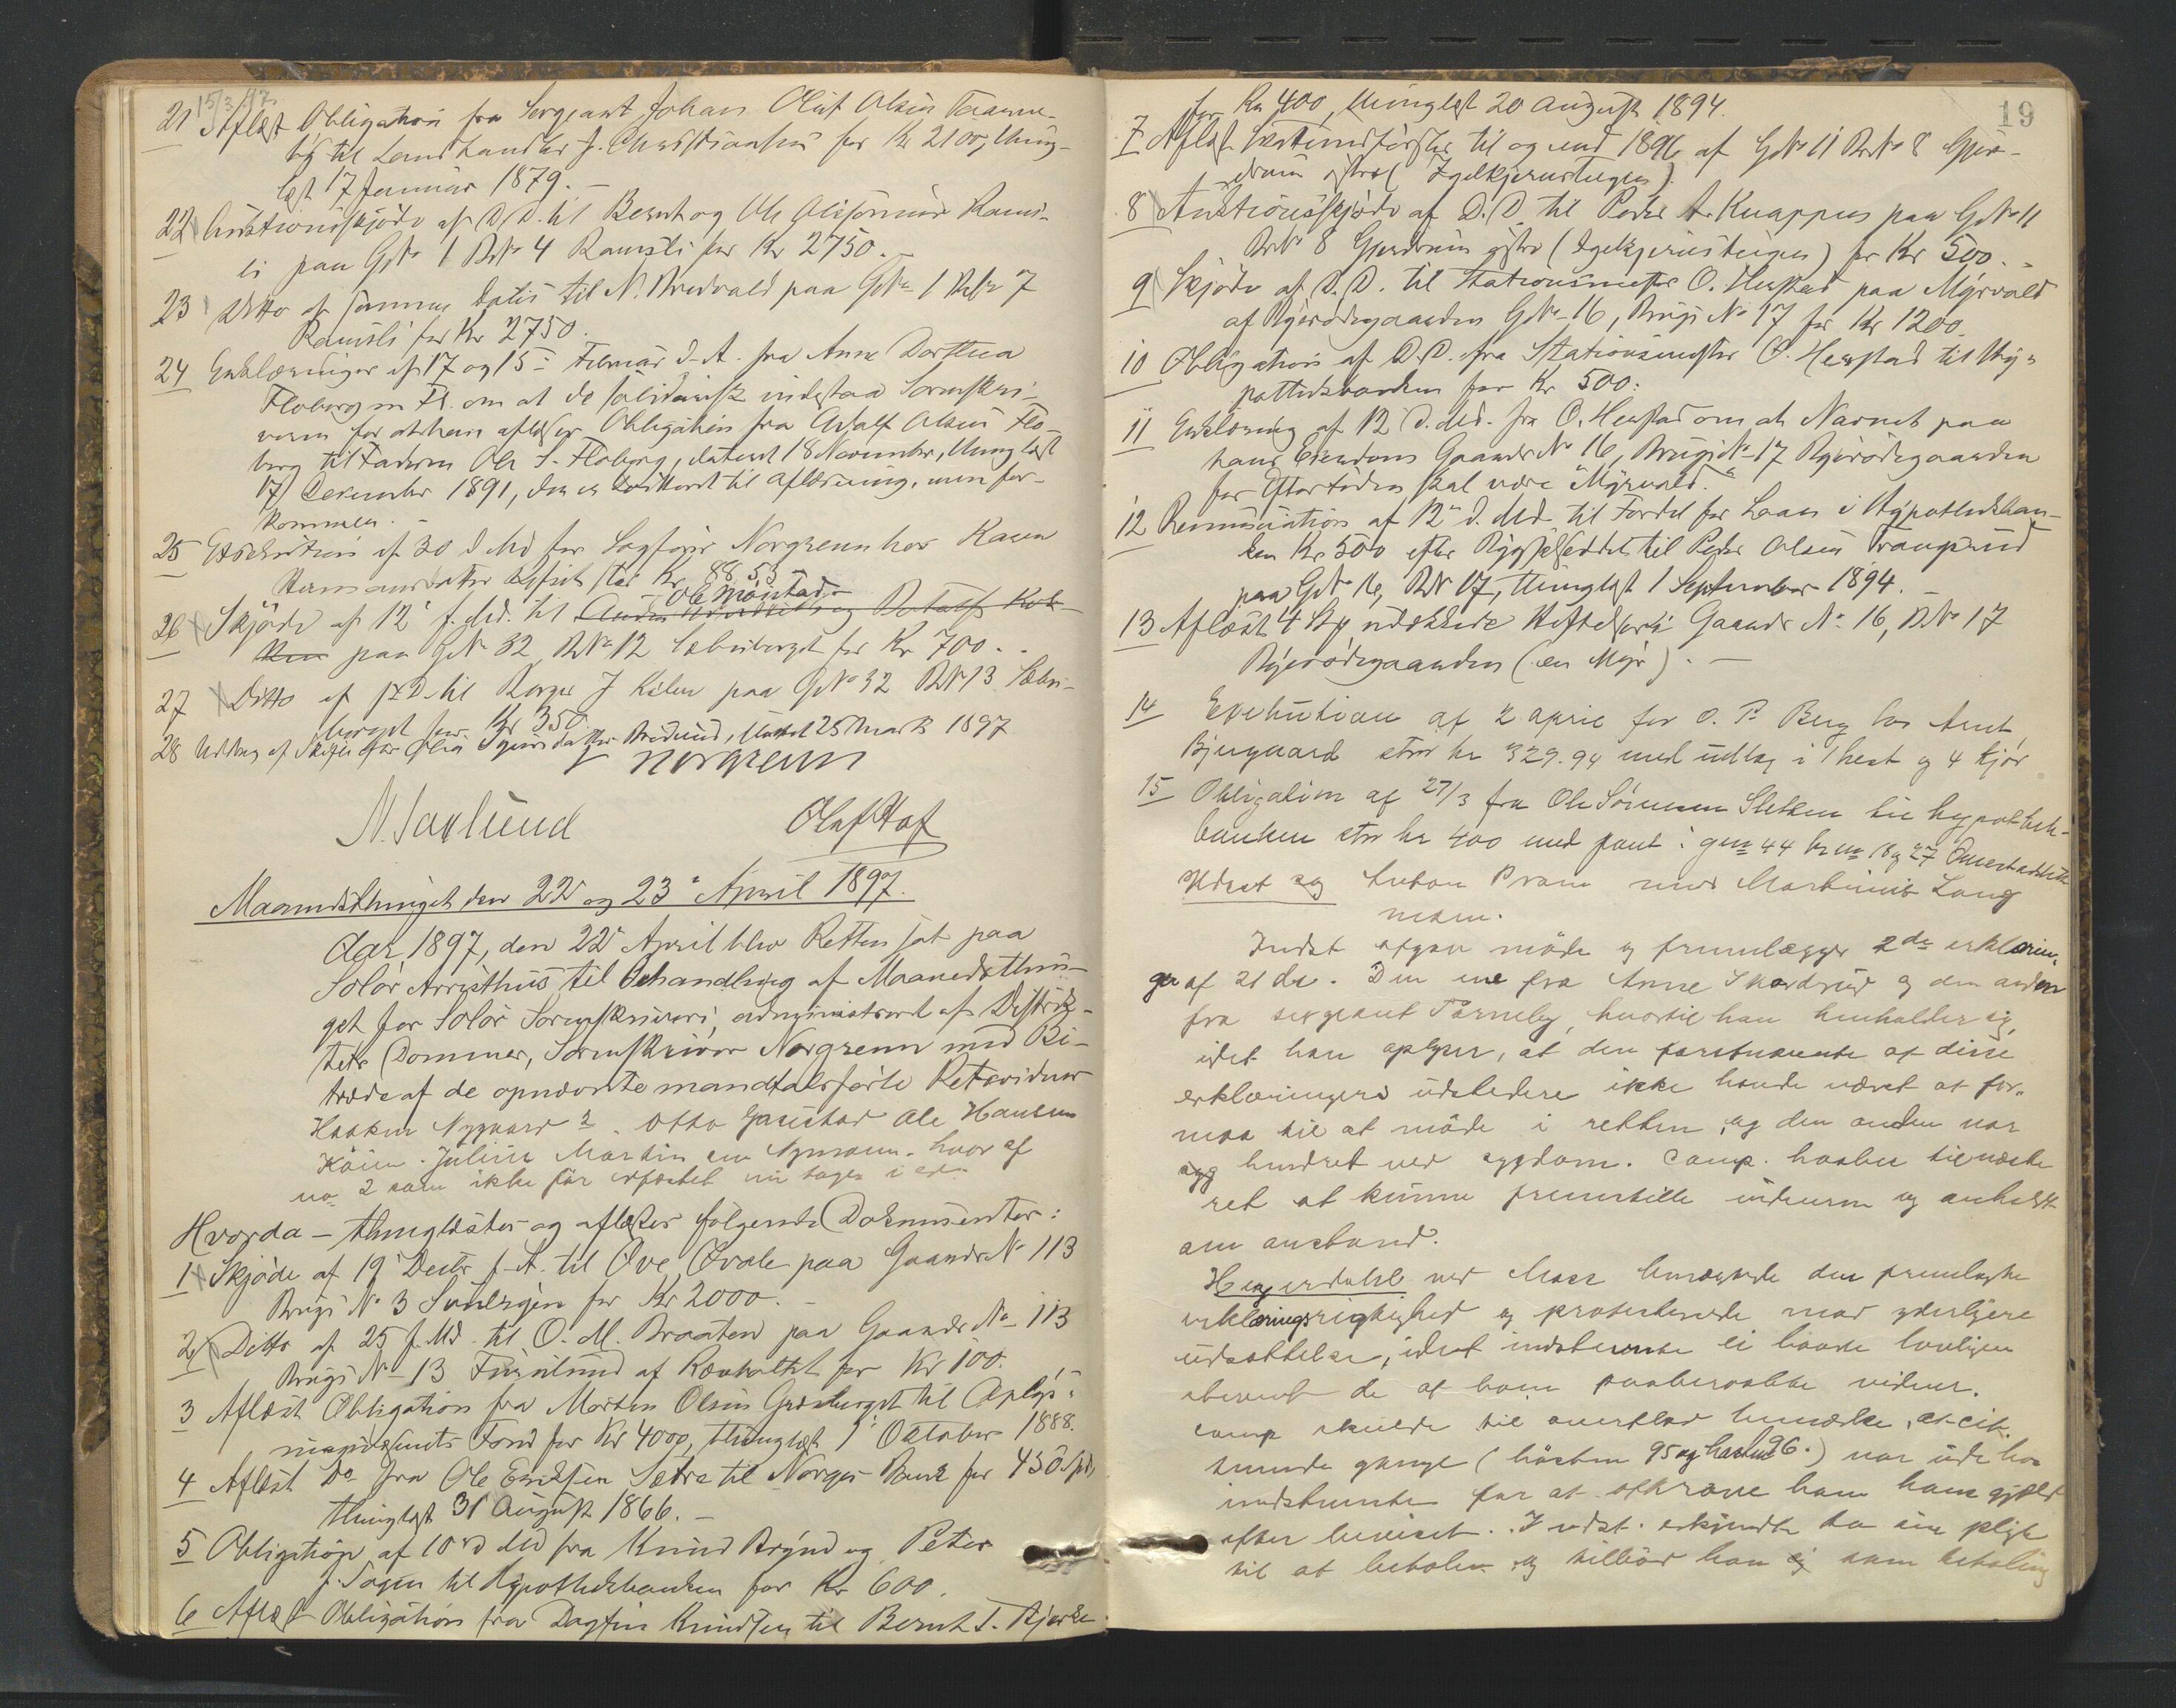 15/3 97.
21 Aflæst Obligation fra Sergeant Johan Oluf Olsen Torne-
by til Landhandler J. Christiansen for Kr 2100, thing-
læst 17 Januar 1879. -
22 Auktionsskjøde af D. D. til Bernt og Ole Olissønner Rams-
li paa GNo 1 BNo 4 Ramsli for Kr 2750. -
23 Ditto af samme Datis til N. Bredvald paa GNo 1 BNo 7
Ramsli for Kr 2750.
24 Erklæringer af 17 og 15 Februar d. A. fra Anne Dorthea
Floberg m Fl. om at de solidarisk indestaa Sorenskri-
veren for at han aflæser Obligation fra Adolf Olsen Flo-
berg til Faderen Ole S. Floberg, dateret 18 November, thinglæst
17 December 1891, der er kvitteret til aflæsning, men for-
kommen. -
25 Exekution af 30 d Md for Sagfører Norgrenn hos Karen
Hermansdatter Kr 88.53
Ole Mønstad -
26 Skjøde af 12 f. Md. til
paa GNo 32, BNo 12 Sæbriberget for Kr 700. -
27 Ditto af s. D. til Borger J Kilen paa GNo 32 BNo 13 Sæbri-
berget for Kr 350.
28 Udskrift af Skifte efter Olea Syversdatter, sluttet 25 Marts 1897
Norgrenn
N. Saxlund Olaf Hof
Maanedsthinget den 22 og 23 April 1897.
Aar 1897, den 22 April blev Retten sat paa
Solør Arresthus til Behandling af Maanedsthin-
get for Solør Sorenskriveri, administreret af Distrik-
tets Dommer, Sorenskriver Norgrenn med Bi-
træde af de opnævnte mandtalsførte Retsvidner
Haaken Nygaard 2. Otto Gaustad Ole Hansen
Køien. Julius Martinsen Nymoen. hvor af
no 2 som ikke før edfæstet nu tages i ed.
Hvorda - thinglæstes og aflæstes følgende Dokumenter:
1 Skjøde af 19 Decbr f. A. til Ove Ovale paa Gaards No 113
Brugs No 3 for Kr 2000. -
2 Ditto af 25 f. Md. til O. M. Braaten paa Gaards No 113
Brugs No 13 Furulund af Ravholtet for Kr 100. -
3 Aflæst Obligation fra Morten Olsen Grasberget til Oplys-
ningsvæsenets Fond for Kr 4000, thinglæst 1 Oktober 1888.
4 Aflæst Do fra Ole Eriksen Sætre til Norges Bank for 450 Spd,
thinglæst 31 August 1866. -
5 Obligation af 10 d Md fra Knud Brynd og Peter
J. Sagen til Hypothekbanken for Kr 600.
6 Aflæst Obligation fra Dagfin Knudsen til Bernt T. Bjerke
19
for Kr 400, thinglæst 20 August 1894.
7 Aflæst til og med 1896 af GNo 11 BNo 8 Gjer-
drum østre (Igelkjernsteigen).
8 Auktionsskjøde af D. D. til Peder A. Knappus paa GNo 11
BNo 8 Gjerdrum østre (Igelkjernsteigen) for Kr 500. -
9 Skjøde af D. D. til Stationsmester O. Herstad paa Myrvold
af Ryerødegaarden GNo 16, Brugs No 17 for Kr 1200.
10 Obligation af D. D. fra Stationsmester O. Herstad til Hy-
pothekbanken for Kr 500.
11 Erklæring af 12 d. Md. fra O. Herstad om at Navnet paa
hans Eiendom Gaards No 16, Brugs No 17 Ryerødegaarden
for Eftertiden skal være "Myrvold."
12 Renunciation af 12 d. Md til Fordel for Laan i Hypothekban-
ken Kr 500 efter til Peder Olsen
paa GNo 16, BNo 17, thinglæst 1 September 1894. -
13 Aflæst 4 Stk udækkede Hæftelser i Gaards No 16, BNo 17
Ryerødegaarden (en Myr). -
14 Exekution af 2 april for O. P. Berg hos Amt.
Bjergaard stor kr 329.94 med udlæg i 1 hest og 4 kjør
15 Obligation af 27/3 fra Ole Sørensen Sletten til hypothek-
banken stor kr 400 med pant i gno 44 brno 18 og 27
Udsat sag Anton Pram mod Martinius Lang
moen.
Indst afgav møde og fremlægger 2de erklærin-
ger af 21 ds. Den ene fra Anne Skardrud og den anden
fra sergeant Tørneby, hvortil han henholder sig,
idet han oplyser, at den førstnævnte af disse
erklæringers udstedere ikke havde været at for-
maa til at møde i retten, og den anden var
hindret ved sygdom. Comp. haaber til næste
ret at kunne fremstille vidnerne og anholdt
om anstand.
Hegerdahl ved Moer benægtede den fremlagte
erklæringsrigtighed og protesterede mod yderligere
udsættelse, idet indstevnte ei havde lovligen
stevnet de af ham paaberaabte vidner.
Comp skulde til overflod bemærke, at cit.
tvende gange (høsten 95 og høsten 96.) var ude hos
indstevnte for at afkræve ham hans gjæld
efter beviset. Indst. erkjendte da sin pligt
til at betale og tilbød han sig som betaling